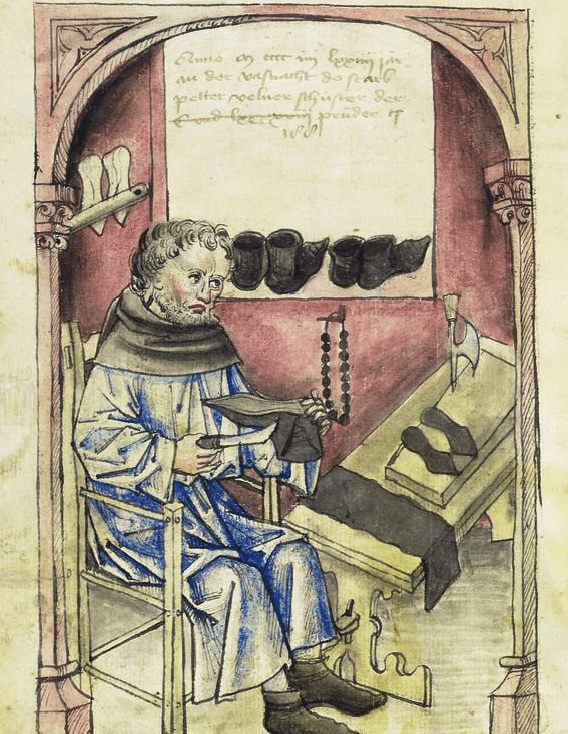 Anno m cccc in lxxiiij jar
an der vasnacht do starb
petter velner schuster der
pruder